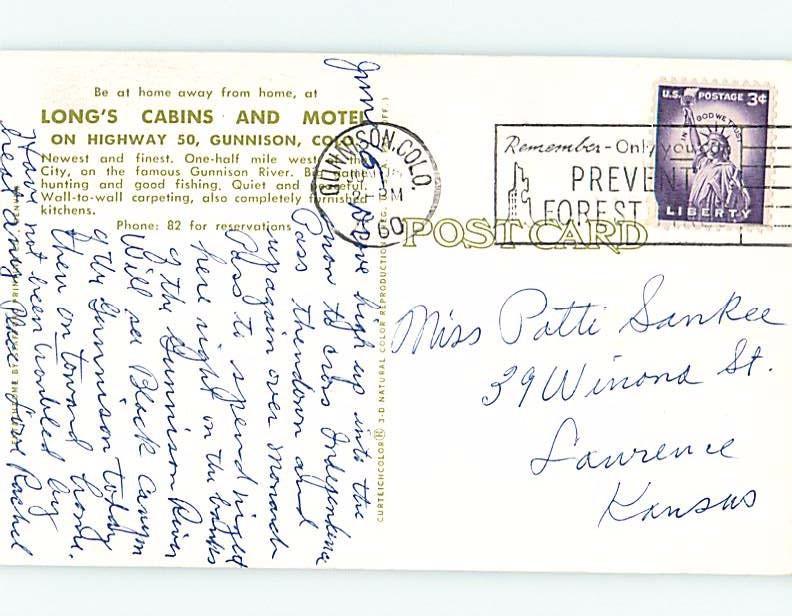 Be at home away from home, at
LONG'S CABINS AND MOTEL
ON HIGHWAY 50, GUNNISON, COLO.
Newest and finest. One-half mile west of the
City, on the famous Gunnison River. Big game
hunting and good fishing. Quiet and peaceful.
Wall-to-wall carpeting, also completely furnished
kitchens.
Phone: 82 for reservations
June 5
Gone high up into the
snow to cross Independence
Pass then down and
up again over Monarch
Pass to spend night
here right on the banks
of the Gunnison River
Will see Black Canyon
of the Gunnison today
then on toward home.
Have not been troubled by
heat any place. Love Rachel
CURTEICHCOLOR® 3-D NATURAL COLOR REPRODUCTION
POST CARD
GUNNISON, COLO.
PM
60
Remember- Only you can
PREVENT
FOREST
U.S. POSTAGE 3¢
IN GOD WE TRUST
LIBERTY
Miss Patti Sankee
39 Winona St.
Lawrence
Kansas